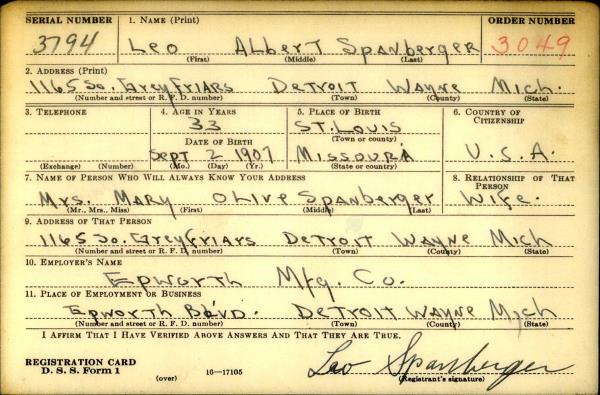 SERIAL NUMBER 1. NAME (Print) ORDER NUMBER
3794 Leo Albert Spanberger 3049
(First) (Middle) (Last)
2. ADDRESS (Print)
1165 So. Grey Friars Detroit Wayne Mich.
(Number and street or R. F. D. number) (Town) (County) (State)
3. TELEPHONE 4. AGE IN YEARS 5. PLACE OF BIRTH 6. COUNTRY OF CITIZENSHIP
33 St. Louis
DATE OF BIRTH (Town or county)
Sept 2 1907 Missoura U.S.A.
(Exchange) (Number) (Mo.) (Day) (Yr.) (State or country)
7. NAME OF PERSON WHO WILL ALWAYS KNOW YOUR ADDRESS 8. RELATIONSHIP OF THAT PERSON
Mrs. Mary Olive Spanberger Wife.
(Mr., Mrs., Miss) (First) (Middle) (Last)
9. ADDRESS OF THAT PERSON
1165 So. Grey Friars Detroit Wayne Mich
(Number and street or R. F. D. number) (Town) (County) (State)
10. EMPLOYER'S NAME
Epworth Mfg. Co.
11. PLACE OF EMPLOYMENT OR BUSINESS
Epworth Detroit Wayne Mich
(Number and street or R. F. D. number) (Town) (County) (State)
I AFFIRM THAT I HAVE VERIFIED ABOVE ANSWERS AND THAT THEY ARE TRUE.
REGISTRATION CARD
D. S. S. Form 1 (over) 16—17105 Leo Spanberger
(Registrant's signature)